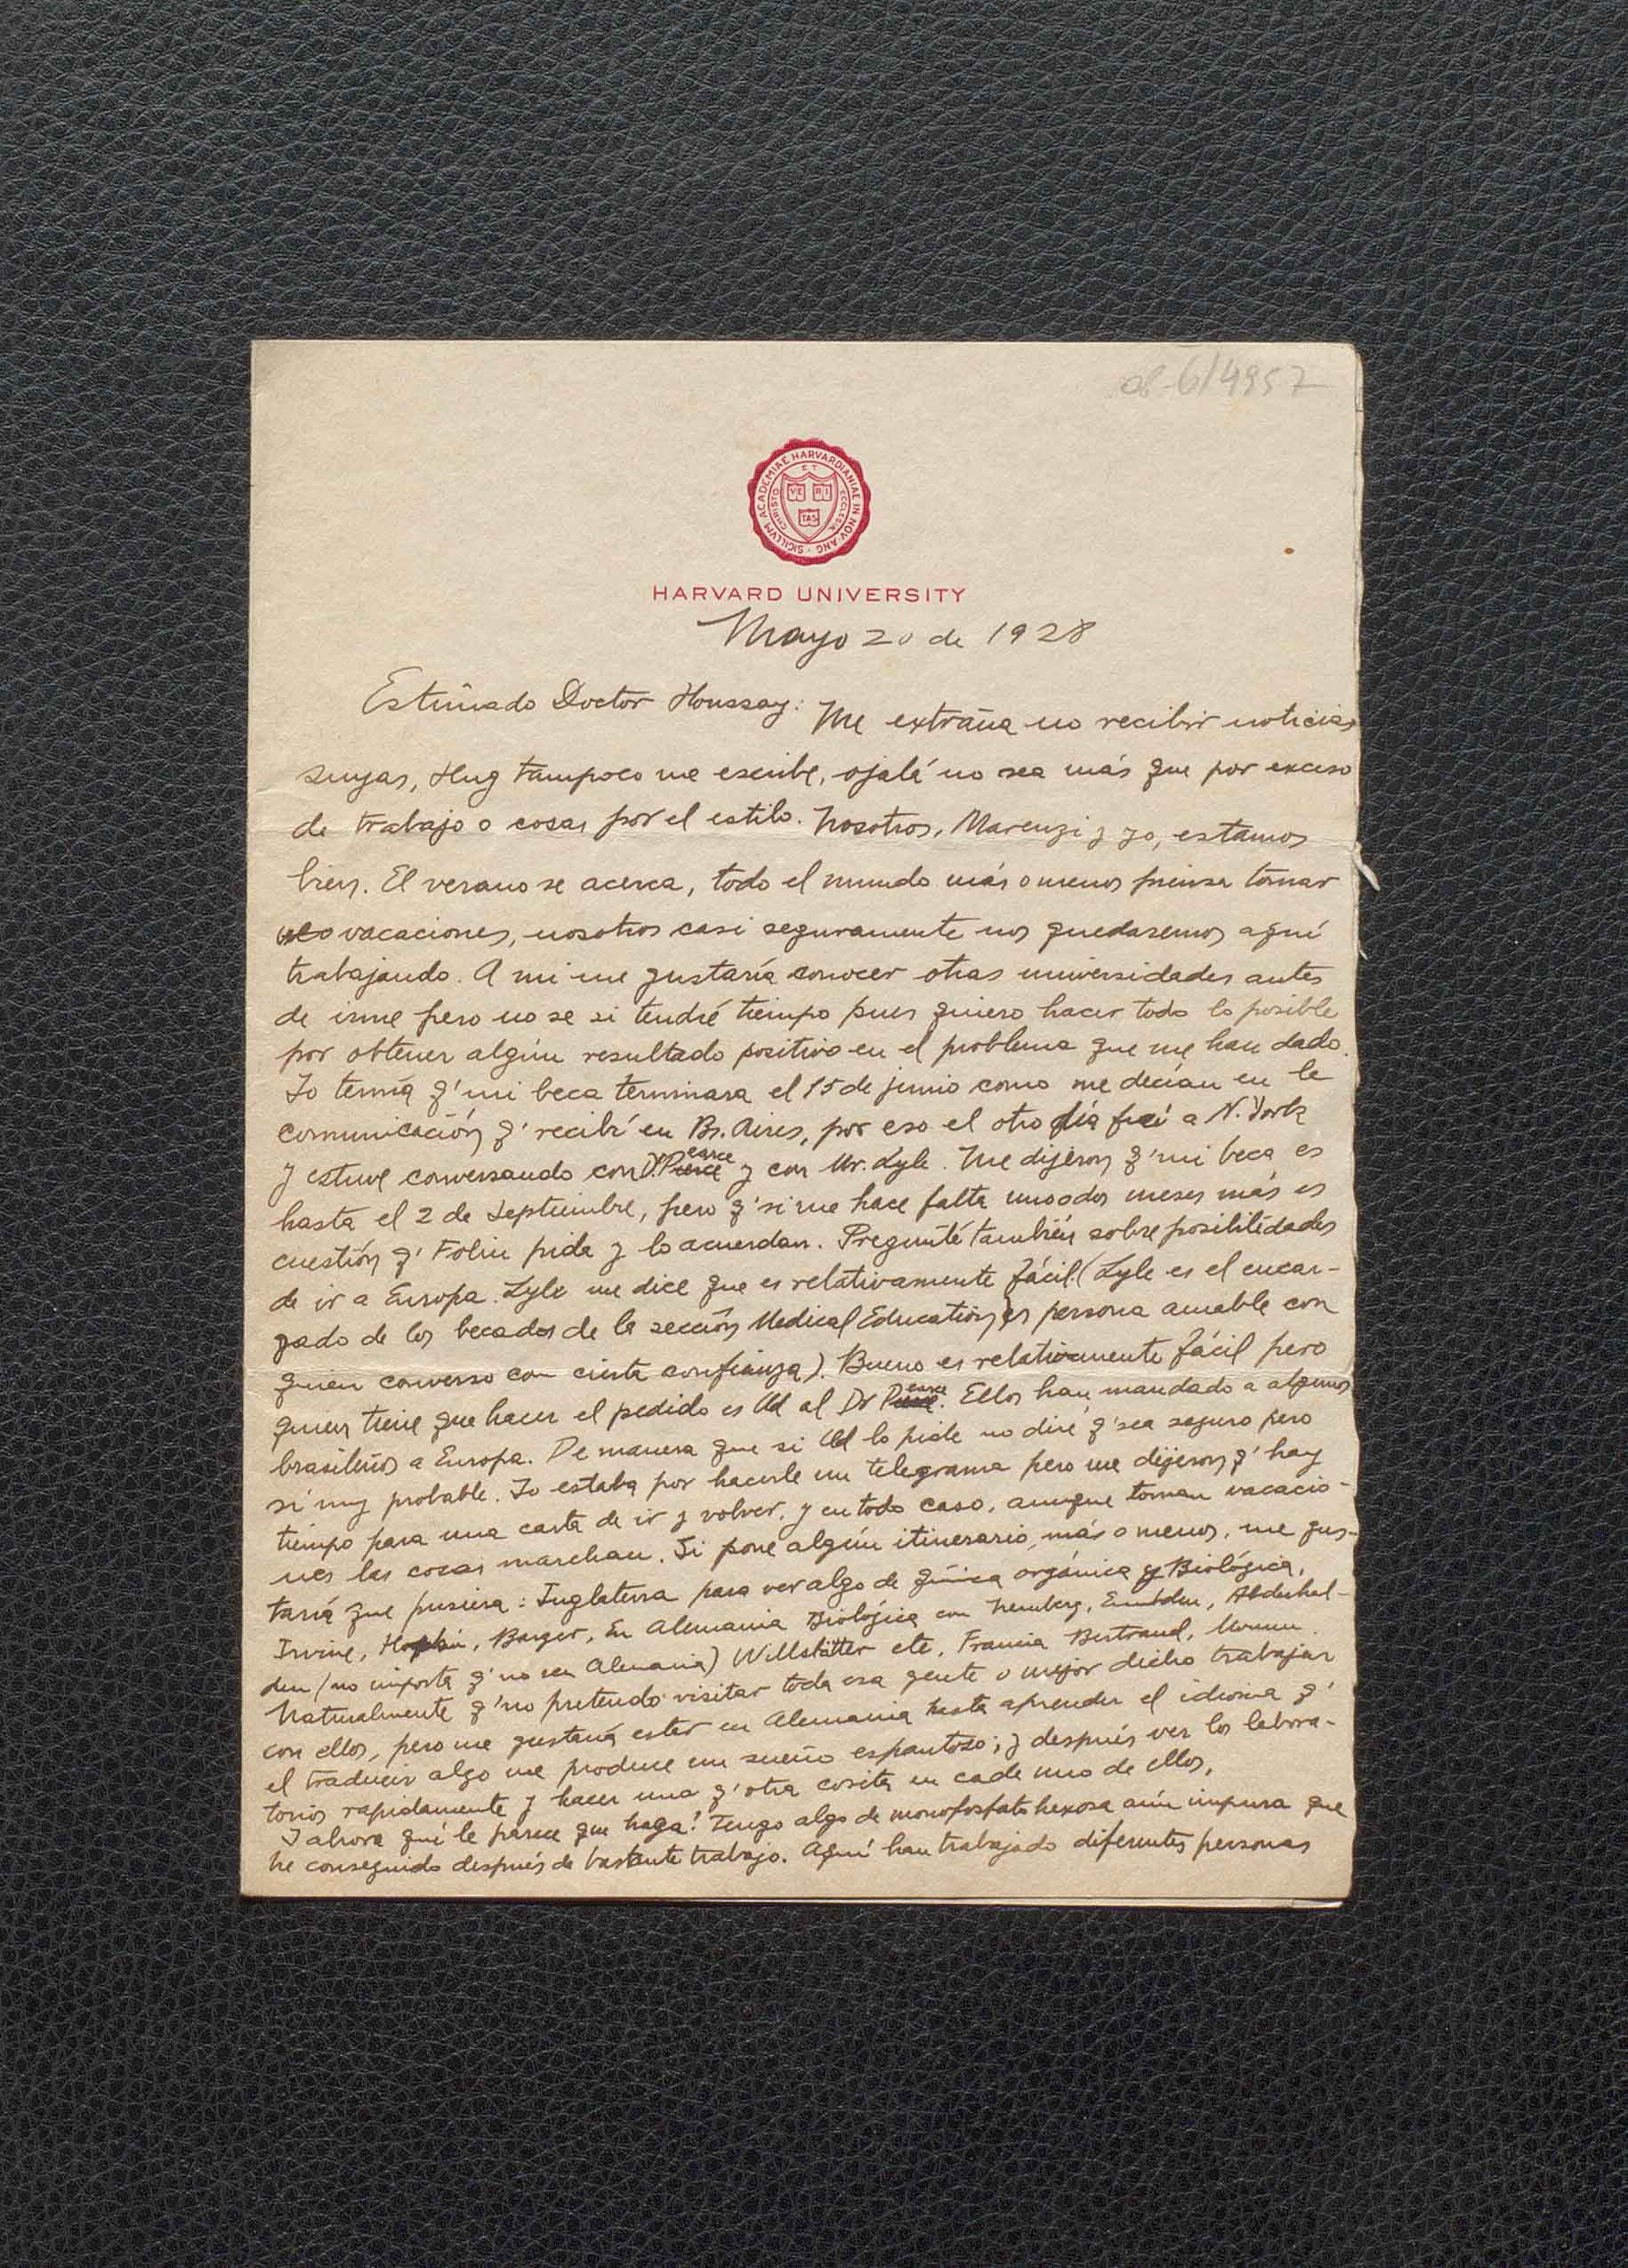 08-6/4957
SIGILLVM ACADEMIAE HARVARDIANAE IN NOV. ANG.
CHRISTO ET ECCLESIAE
VE RI
TAS
HARVARD UNIVERSITY
Mayo 20 de 1928
Estimado Doctor Houssay: Me extraña no recibir noticias
suyas, Hug tampoco me escribe, ojalá no sea más que por exceso
de trabajo o cosas por el estilo. Nosotros, Marenzi y yo, estamos
bien. El verano se acerca, todo el mundo más o menos piensa tomar
vacaciones, nosotros casi seguramente nos quedaremos aquí
trabajando. A mi me gustaría conocer otras universidades antes
de irme pero no se si tendré tiempo pues quiero hacer todo lo posible
por obtener algún resultado positivo en el problema que me han dado.
Yo temía q' mi beca terminara el 15 de junio como me decían en la
comunicación q' recibí en Bs. Aires, por eso el otro día fui a N. York
y estuve conversando con D. Pearce y con Mr. Lyle. Me dijeron q' mi beca es
hasta el 2 de Septiembre, pero q' si me hace falta uno o dos meses más es
cuestión q' Folin pida y lo acuerdan. Pregunté también sobre posibilidades
de ir a Europa. Lyle me dice que es relativamente fácil. (Lyle es el encar-
gado de los becados de la sección Medical Education, es persona amable con
quien converso con cierta confianza). Bueno es relativamente fácil pero
quien tiene que hacer el pedido es Ud al Dr Pearce. Ellos han mandado a algunos
brasileños a Europa. De manera que si Ud lo pide no diré q' sea seguro pero
sí muy probable. Yo estaba por hacerle un telegrama pero me dijeron q' hay
tiempo para una carta de ir y volver, y en todo caso, aunque toman vacacio-
nes las cosas marchan. Si pone algún itinerario, más o menos, me gus-
taría que pusiera: Inglaterra para ver algo de química orgánica y Biológica,
Irvine, Hopkin, Barger, En Alemania Biológica con Neuberg, Embden, Abderhal-
den (no importa q' no sea Alemania) Willstätter etc. Francia Bertrand,
Naturalmente q' no pretendo visitar toda esa gente o mejor dicho trabajar
con ellos, pero me gustaría estar en Alemania hasta aprender el idioma q'
el traducir algo me produce un sueño espantoso; y después ver los labora-
torios rapidamente y hacer una q' otra cosita en cada uno de ellos.
Y ahora qué le parece que haga! Tengo algo de monofosfato hexosa aún impura que
he conseguido después de bastante trabajo. Aquí han trabajado diferentes personas